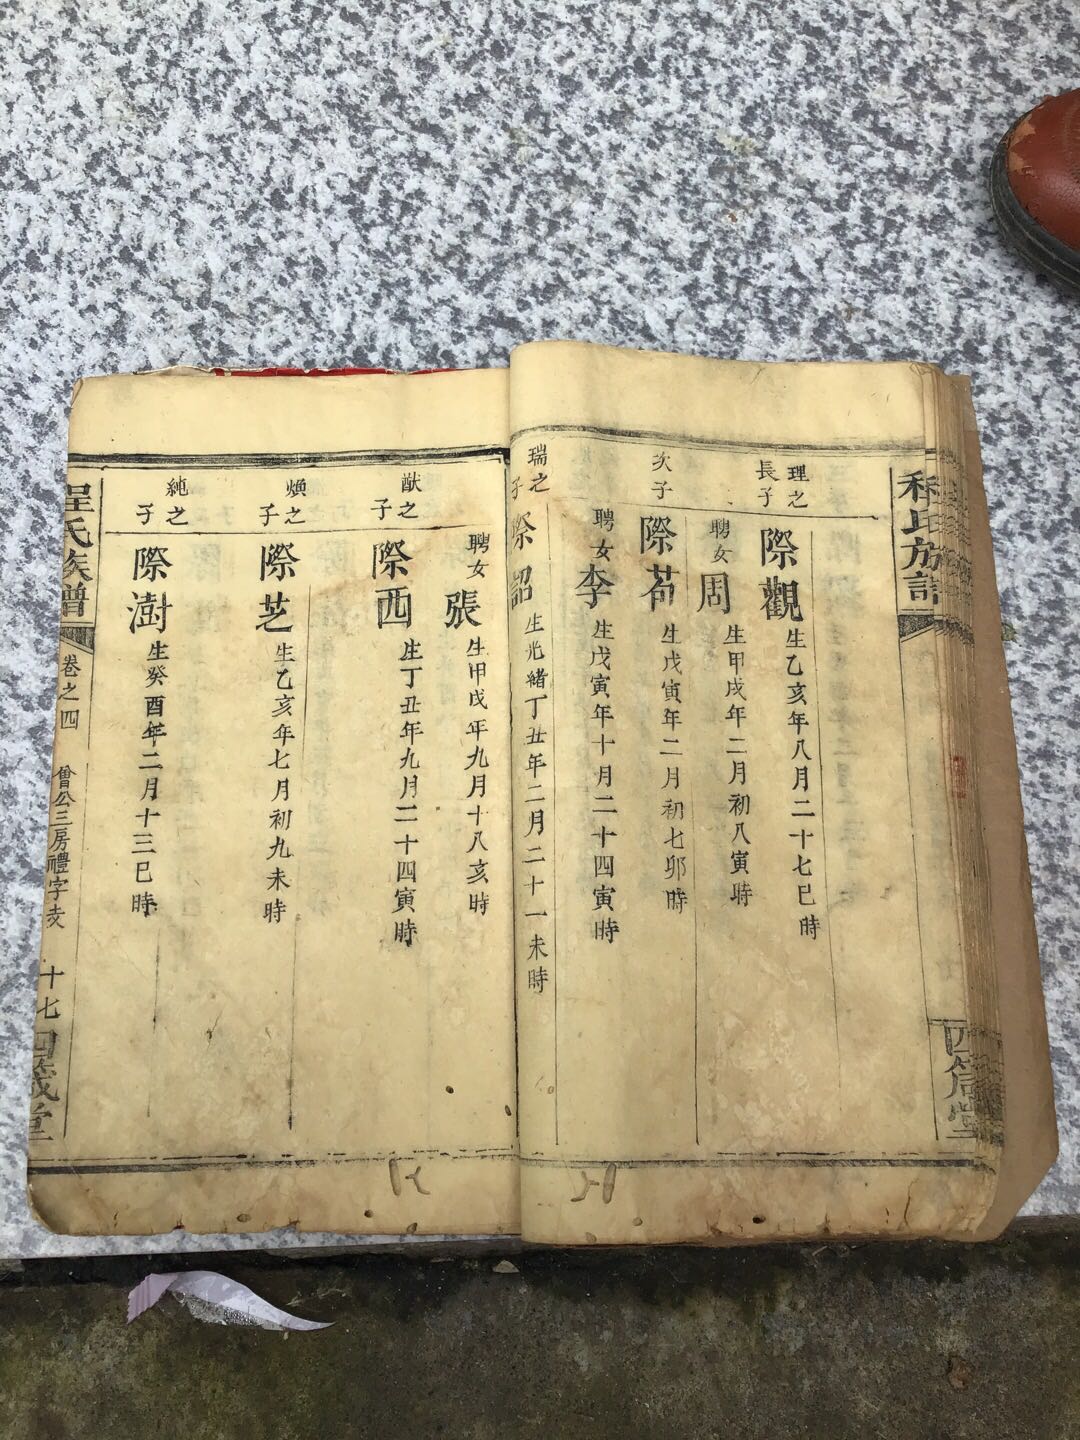 理之
長子
際觀
生乙亥年八月二十七巳時
聘女周
生甲戌年二月初八寅時
次子
際苟
生戊寅年二月初七卯時
聘女李
生戊寅年十月二十四寅時
瑞之
子
際韶
生光緒丁丑年二月二十一未時
聘女張
生甲戌年九月十八亥時
猷之
子
際西
生丁丑年九月二十四寅時
煥之
子
際芝
生乙亥年七月初九未時
純之
子
際澍
生癸酉年二月十三巳時
程氏族譜
卷之四
曾公三房禮字支
十七
四箴堂